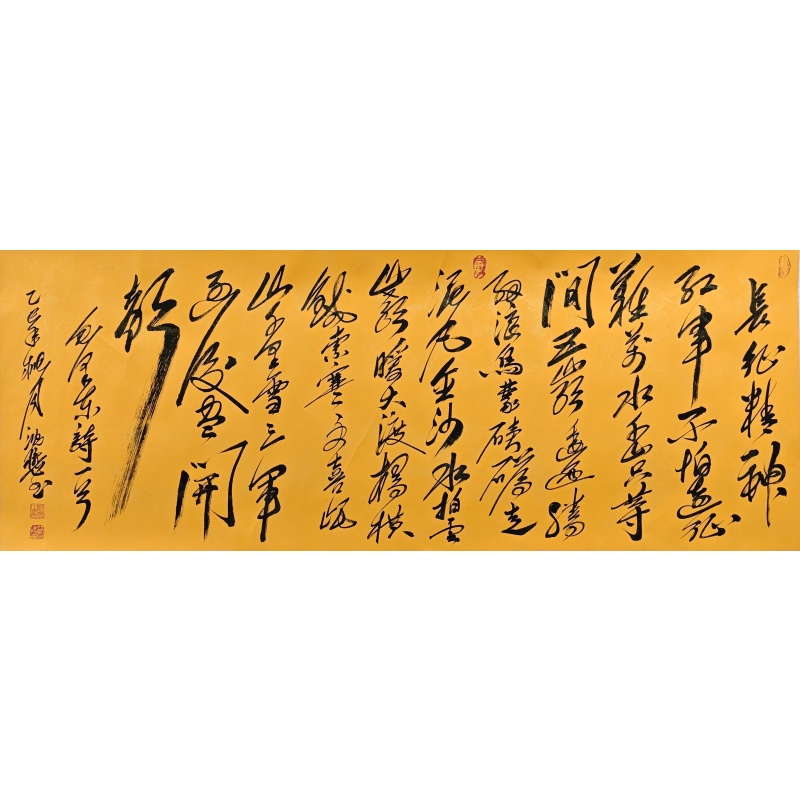 長征精神
红軍不怕遠征
難萬水千山只等
閒五岭逶迤騰
细浪烏蒙磅礴走
泥丸金沙水拍雲
崖暖大渡橋横
鐵索寒更喜岷
山千里雪三軍
過後盡開
颜
毛泽东詩一首
乙巳年桃月 书